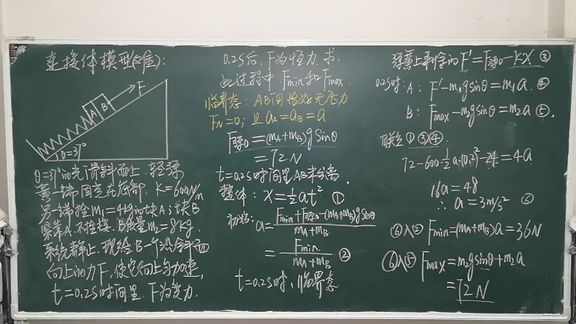 连接体模型(2度):
F
A B
θ=37°
θ=37°光滑斜面上,轻弹
簧一端固定在底部. K=600N/m
另一端拴m₁=4kg物块A;块B
紧靠A,不拴接.B质量m₂=8kg.
系统静止.现给B一个沿斜面
向上的力F,使它向上匀加速,
t=0.2S时间里 F为变力.
0.2S后,F为恒力.求:
此过程中 Fmin和Fmax.
临界态: AB间恰好无压力
F_N=0;且a_A=a_B=a
F弹0=(m_A+m_B)gsinθ
=72N
t=0.2S时间里AB未分离.
整体: x=½at² ①
初始: a=(Fmin+F弹0-(m_A+m_B)gsinθ)/(m_A+m_B)
=Fmin/(m_A+m_B) ②
t=0.2S时,临界态
弹簧上剩余的F'=F弹0-KX ③
0.2S时: A: F'-m₁gsinθ=m₁a. ④
B: Fmax-m₂gsinθ=m₂a ⑤.
联立①③④:
72-600·½a·(0.2)²-24=4a
16a=48
∴a=3m/s² ⑥
⑥入② Fmin=(m_A+m_B)a=36N
⑥入⑤ Fmax=m₂gsinθ+m₂a
=72N